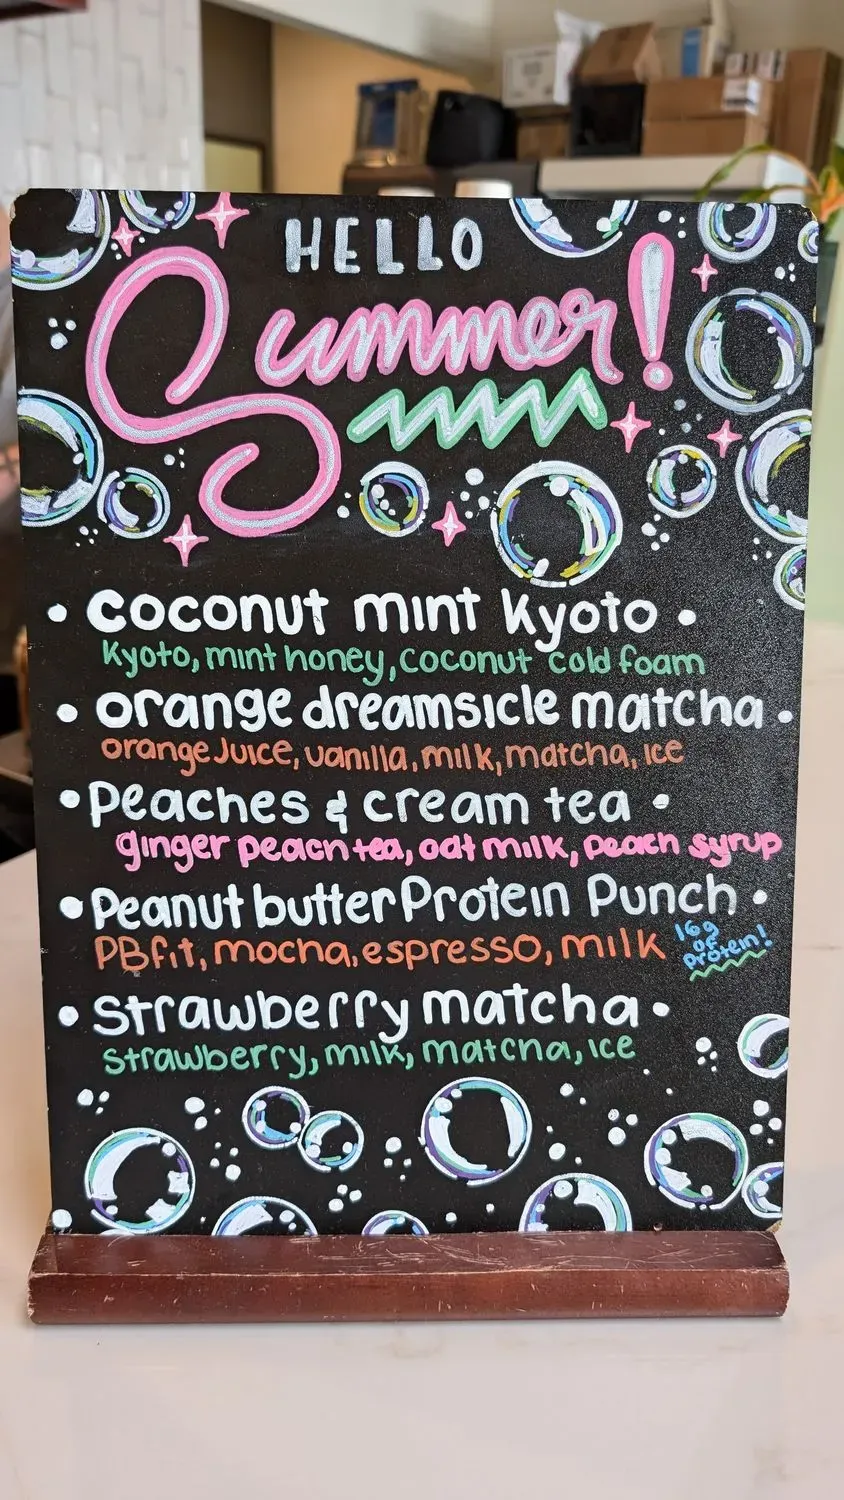 HELLO
Summer!
• coconut mint kyoto •
kyoto, mint honey, coconut cold foam
• orange dreamsicle matcha •
orange juice, vanilla, milk, matcha, ice
• Peaches & cream tea •
ginger peach tea, oat milk, peach syrup
• Peanut butter Protein Punch •
PBfit, mocha, espresso, milk
16g
OF
Protein!
• strawberry matcha •
strawberry, milk, matcha, ice